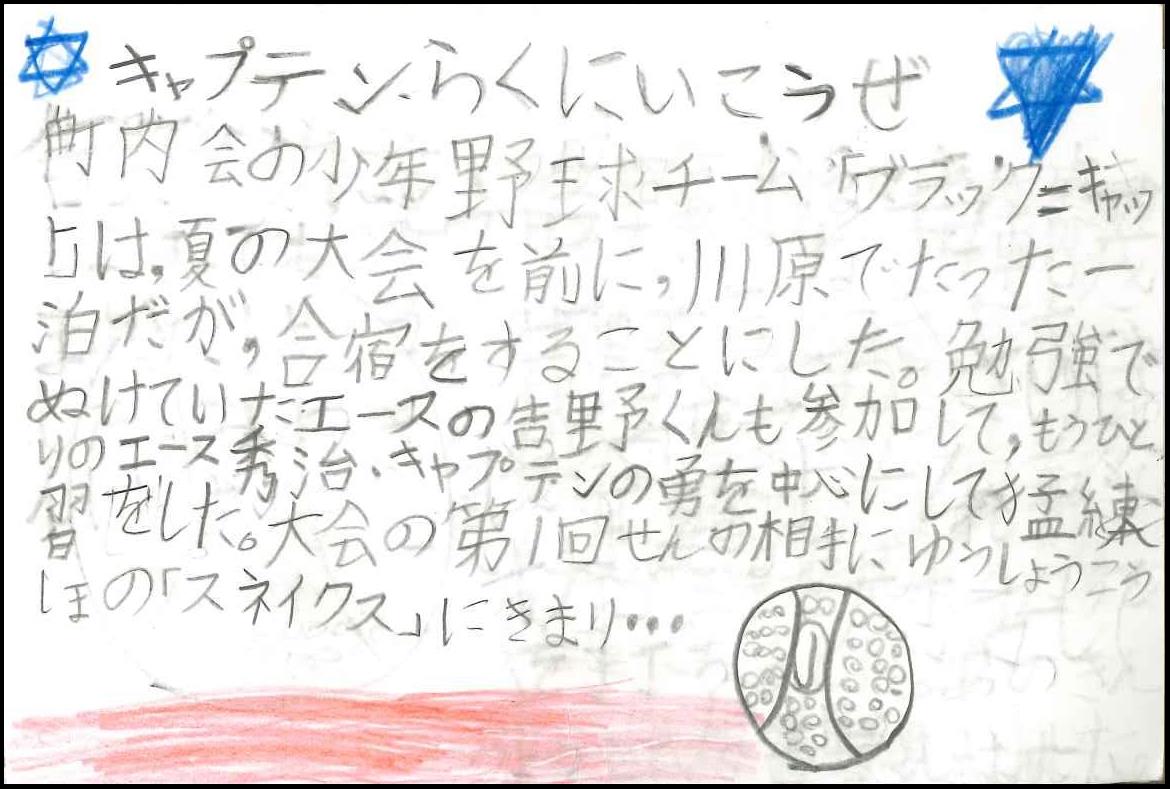 キャプテン.らくにいこうぜ
町内会の少年野球チーム「ブラック=キャッ
ト」は,夏の大会を前に,川原でたった一
泊だが,合宿をすることにした。勉強で
ぬけていたエースの吉野くんも参加して,もうひと
りのエース秀治.キャプテンの勇を中心にして猛練
習をした。大会の第1回せんの相手にゆうしょうこう
ほの「スネイクス」にきまり…